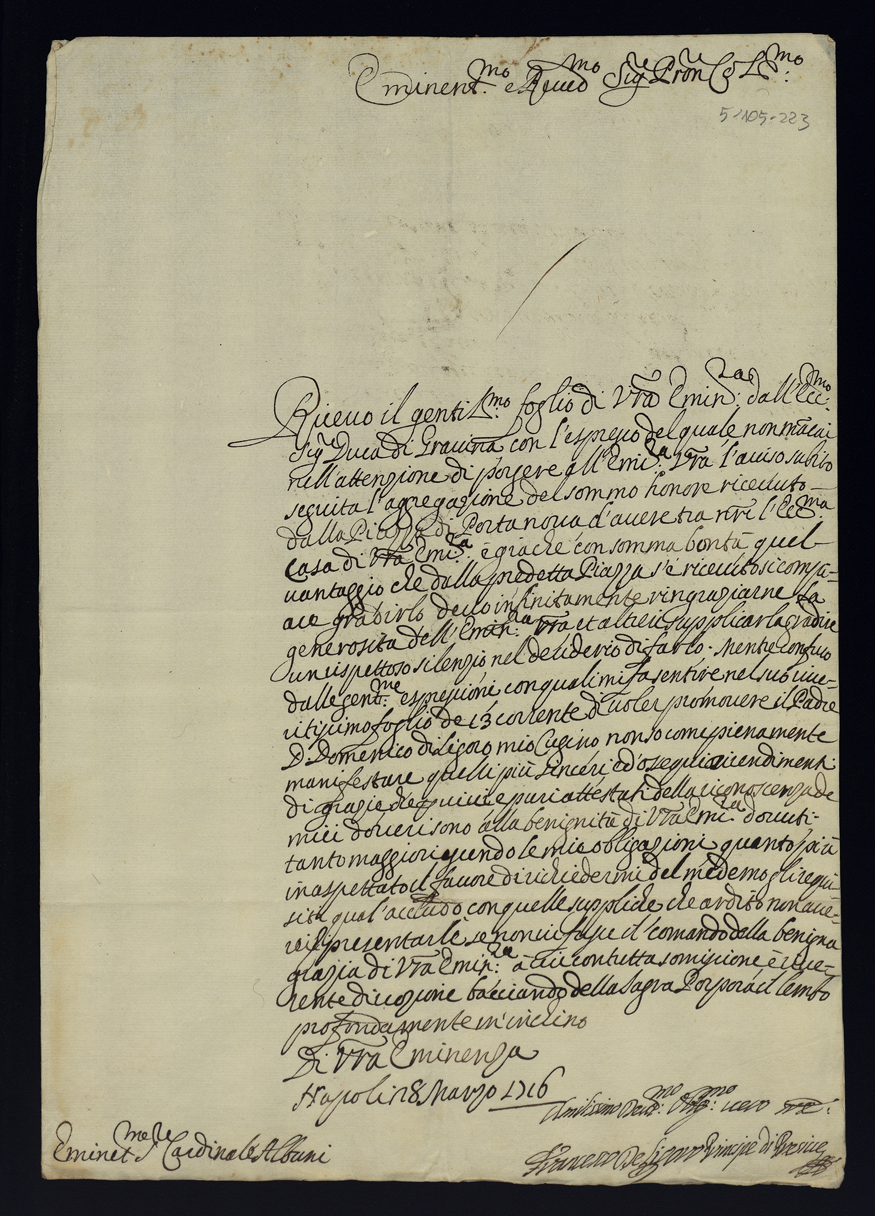 Eminent.mo e Reuedmo Sigre Pron Col.mo
5-105-223
Riceuo il gentil.mo foglio di Vra Emin.za dall'Ecc.mo
Sigr Duca di Grauina con l'espresso del quale non mãcai
nell'attenzione di porgere all'Emi.za Vra l'auiso subito
seguita l'aggregazione del sommo honore riceuuto
dalla Piazza di Porta noua d'auere tra nri l'Ecc.ma
Casa di Vra Emi.za e giache con somma bontà quel
uantaggio che dalla predetta Piazza s'è riceuuto si compi-
ace gradirlo deuo infinitamente ringraziarne la
generosità dell'Emin.za Vra et altresì supplicarla gradire
un rispettoso silenzio nel desiderio di farlo. Mentre confuso
dalle gent.me espressioni con quali mi fa sentire nel suo riue-
ritissimo foglio de 13 corrente d'uoler promouere il Padre
D. Domenico di Ligoro mio Cugino non so come pienamente
manifestare quelli più sinceri ed ossequiosi rendimenti
di grazie che quiui e puri attestati della riconoscenza de
miei doueri sono alla benignità di Vra Emi.za douuti
tanto maggiori essendo le mie obligazioni quanto più
inaspettato il fauore di richiedermi del medemo gli requi-
siti qual'accludo con quelle suppliche che ardito non aue-
rei presentarle se non ui fusse il comando della benigna
grazia di Vra Emin.za à cui con tutta somissione e riue-
rente diuozione bacciando della Sagra Porpora il lembo
profondamente m'inclino
Di Vra Eminenza
Napoli 28 Marzo 1716
Umilissimo Deuo.mo Oblig.mo uero
Eminet.mo Sre Cardinale Albani
Francesco De Ligoro Principe di Presicce